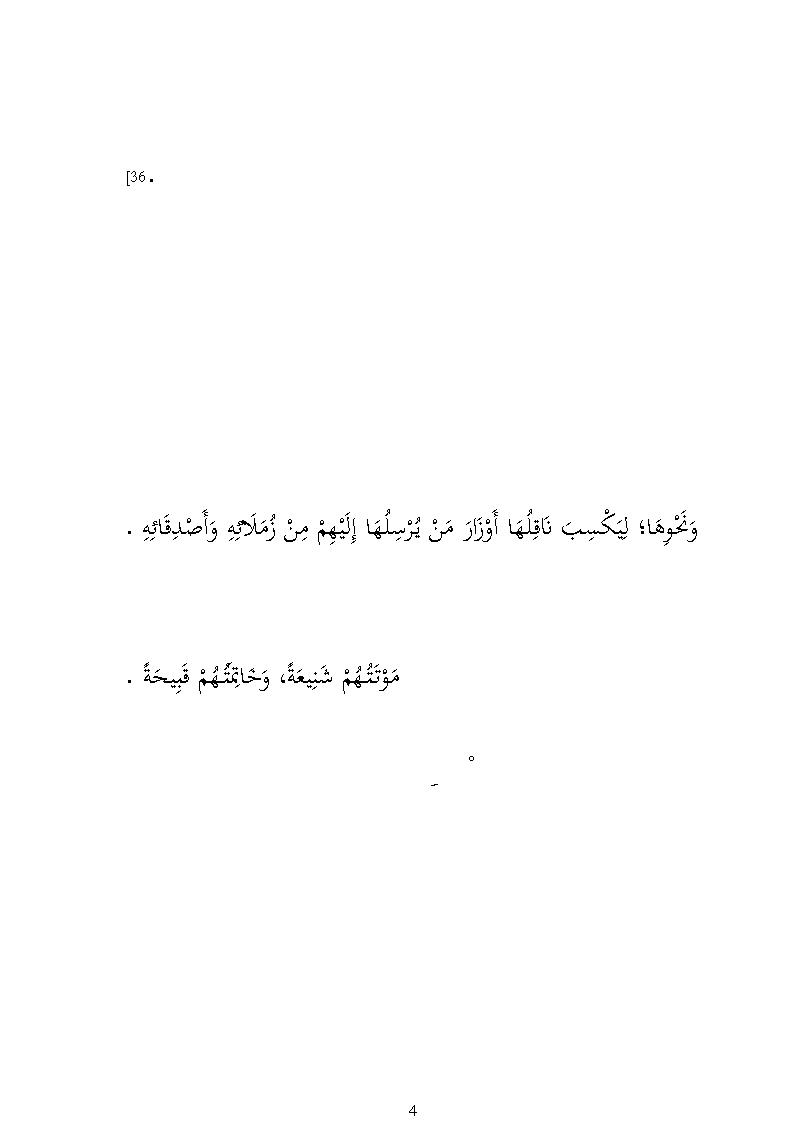 [36 .
وَنَحْوِهَا؛ لِيَكْسِبَ نَاقِلُهَا أَوْزَارَ مَنْ يُرْسِلُهَا إِلَيْهِمْ مِنْ زُمَلَائِهِ وَأَصْدِقَائِهِ .
مَوْتَتُهُمْ شَنِيعَةً، وَخَاتِمَتُهُمْ قَبِيحَةً .
4